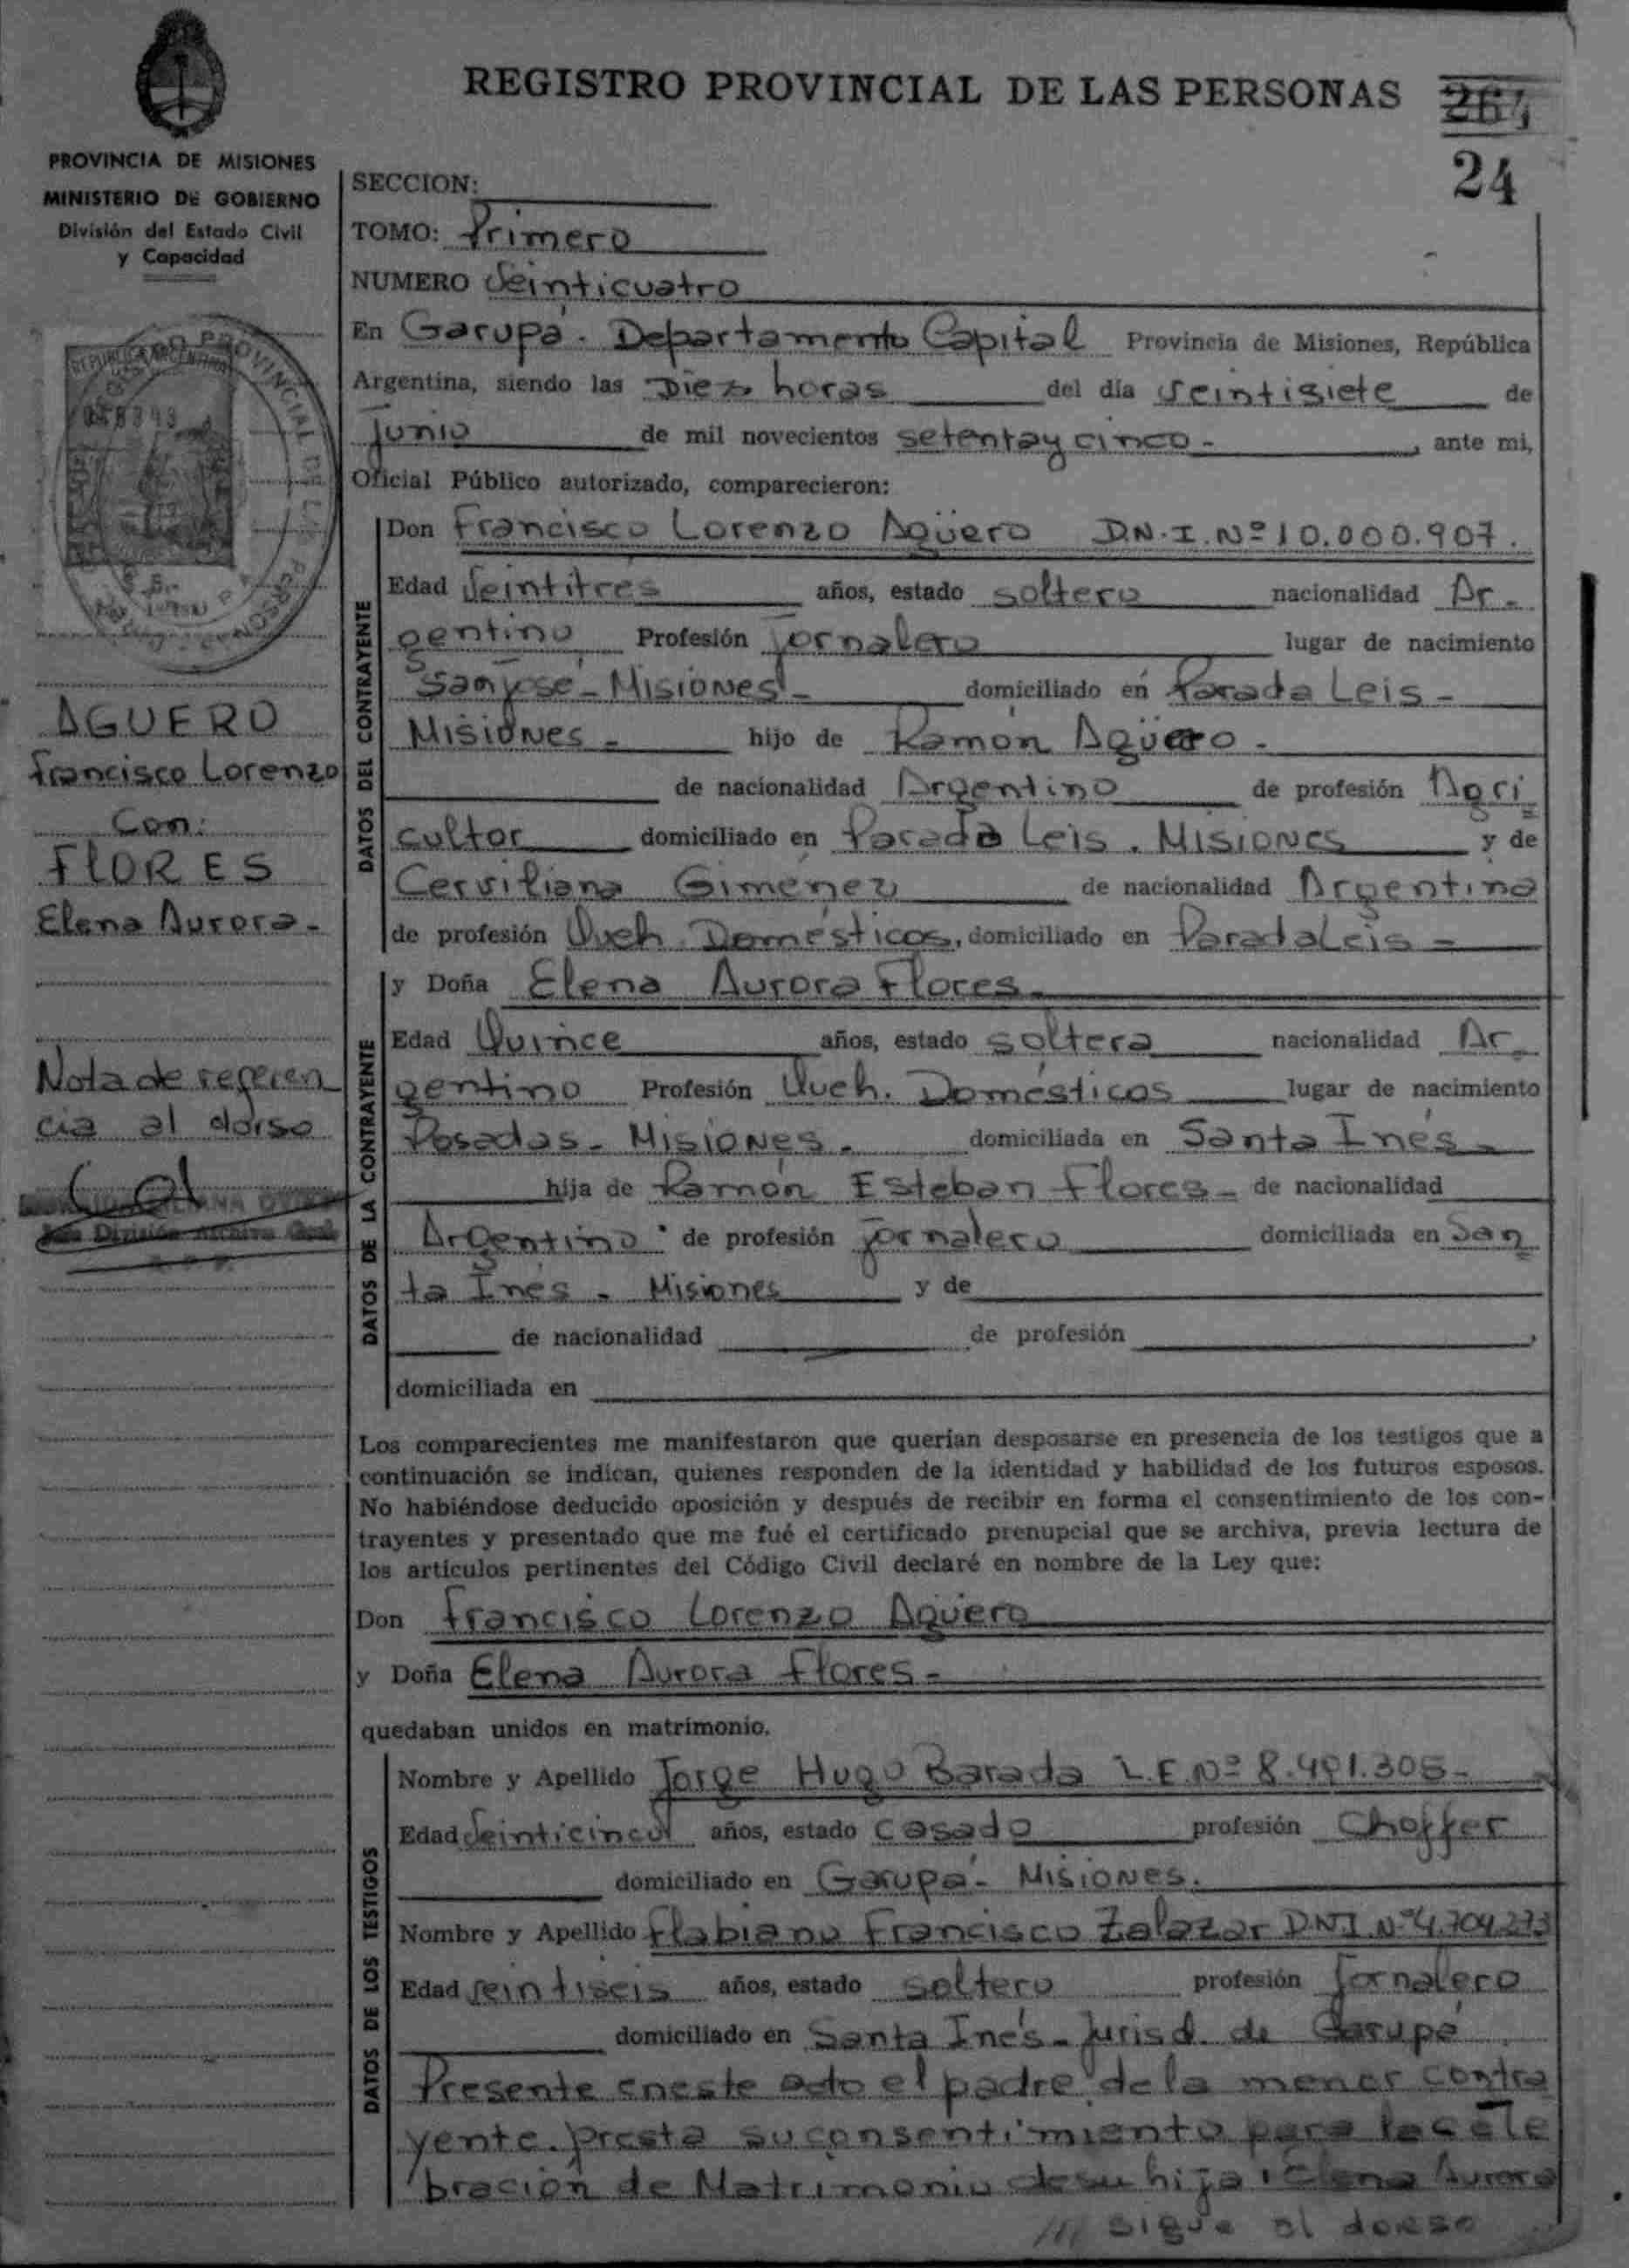 REGISTRO PROVINCIAL DE LAS PERSONAS
264
24
PROVINCIA DE MISIONES
MINISTERIO DE GOBIERNO
División del Estado Civil
y Capacidad
SECCION:
TOMO: Primero
NUMERO Veinticuatro
En Garupá. Departamento Capital Provincia de Misiones, República
Argentina, siendo las Diez horas del día veintisiete de
Junio de mil novecientos setenta y cinco - , ante mi,
Oficial Público autorizado, comparecieron:
DATOS DEL CONTRAYENTE
Don Francisco Lorenzo Agüero D.N.I. Nº 10.000.907.
Edad Veintitres años, estado soltero nacionalidad Ar-
gentino Profesión Jornalero lugar de nacimiento
San José - Misiones - domiciliado en Parada Leis -
Misiones - hijo de Ramón Agüero -
de nacionalidad Argentino de profesión Agri
cultor domiciliado en Parada Leis. Misiones y de
Cersiliana Giménez de nacionalidad Argentina
de profesión Queh. Domésticos, domiciliado en Parada Leis -
DATOS DE LA CONTRAYENTE
y Doña Elena Aurora Flores -
Edad Quince años, estado soltera nacionalidad Ar-
gentino Profesión Queh. Domésticos lugar de nacimiento
Posadas - Misiones. domiciliada en Santa Inés -
hija de Ramón Esteban Flores - de nacionalidad
Argentino de profesión Jornalero domiciliada en San
ta Inés - Misiones y de
de nacionalidad de profesión ,
domiciliada en
Los comparecientes me manifestaron que querían desposarse en presencia de los testigos que a
continuación se indican, quienes responden de la identidad y habilidad de los futuros esposos.
No habiéndose deducido oposición y después de recibir en forma el consentimiento de los con-
trayentes y presentado que me fué el certificado prenupcial que se archiva, previa lectura de
los artículos pertinentes del Código Civil declaré en nombre de la Ley que:
Don Francisco Lorenzo Agüero
y Doña Elena Aurora Flores -
quedaban unidos en matrimonio.
DATOS DE LOS TESTIGOS
Nombre y Apellido Jorge Hugo Barada L.E. Nº 8.491.305 -
Edad Veinticinco años, estado casado profesión Choffer
domiciliado en Garupá - Misiones.
Nombre y Apellido Flabiano Francisco Zalazar D.N.I. Nº 4.704.273
Edad veintiseis años, estado soltero profesión Jornalero
domiciliado en Santa Inés - Jurisd. de Garupá
Presente en este acto el padre de la menor contra
yente. presta su consentimiento para la cele
bración de Matrimonio de su hija Elena Aurora
/// sigue al dorso
AGUERO
Francisco Lorenzo
Con:
FLORES
Elena Aurora -
Nota de referen
cia al dorso